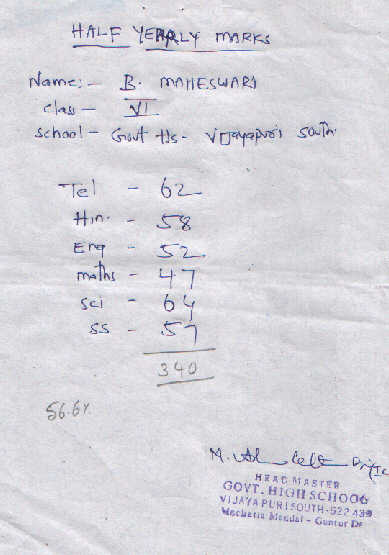 HALF YEARLY MARKS
Name:- B. MAHESWARI
Class - VI
School - Govt Hs - Vijayapuri South.
Tel - 62
Hin. - 58
Eng - 52
maths - 47
Sci - 64
SS - 57
340
56.6%
HEAD MASTER
GOVT. HIGH SCHOOL
VIJAYAPURI SOUTH-522 439
Macherla Mandal - Guntur Dt